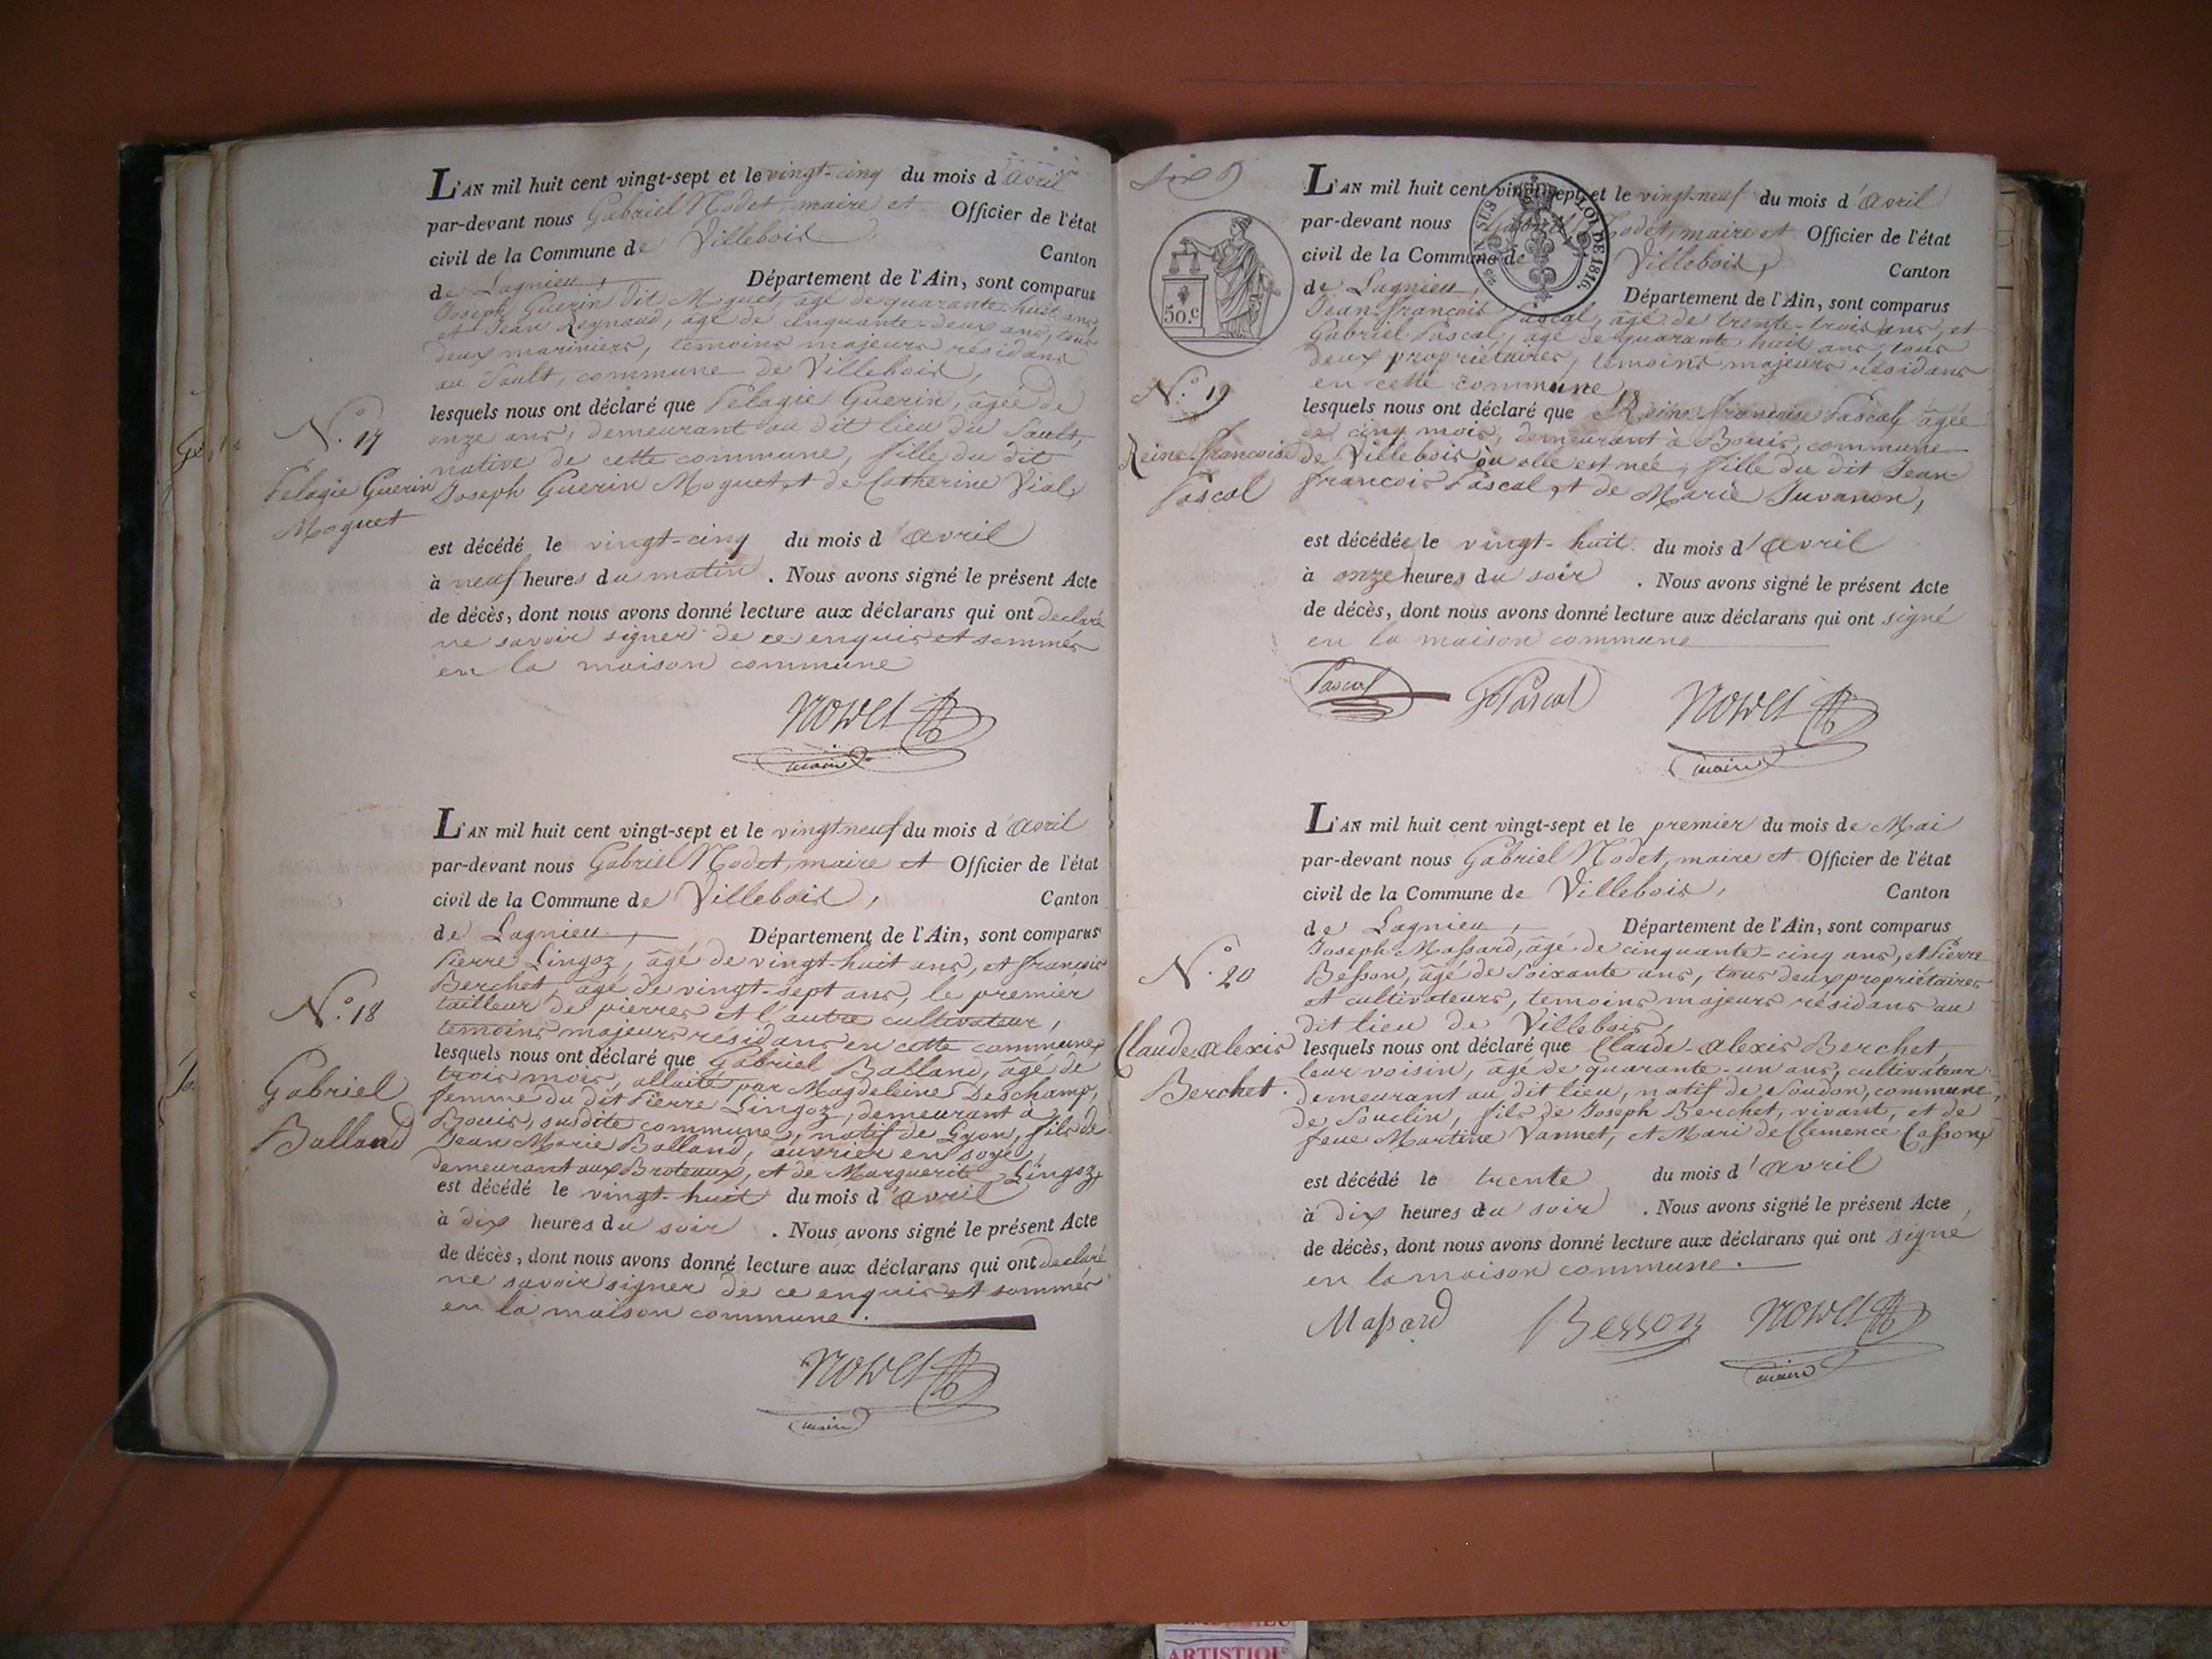 L'AN mil huit cent vingt-sept et le vingt-cinq du mois d'avril
par-devant nous Gabriel Nodet, maire et Officier de l'état
civil de la Commune de Villebois Canton
de Lagnieu, Département de l'Ain, sont comparus
Joseph Guerin dit Moguet, âgé de quarante-huit ans,
et Jean Reynaud, âgé de cinquante-deux ans, tous
deux mariniers, temoins majeurs résidans
au Sault, commune de Villebois,
N.o 17
lesquels nous ont déclaré que Pelagie Guerin, âgée de
onze ans, demeurant au dit lieu du Sault,
native de cette commune, fille du dit
Pelagie Guerin
Moguet
Joseph Guerin Moguet et de Catherine Vial,
est décédé le vingt-cinq du mois d'avril
à neuf heures du matin. Nous avons signé le présent Acte
de décès, dont nous avons donné lecture aux déclarans qui ont declaré
ne savoir signer de ce enquis et sommés
en la maison commune
Nodet
maire
L'AN mil huit cent vingt-sept et le vingt neuf du mois d'avril
par-devant nous Gabriel Nodet, maire et Officier de l'état
civil de la Commune de Villebois, Canton
de Lagnieu, Département de l'Ain, sont comparus
Pierre Lingoz, âgé de vingt-huit ans, et françois
Berchet, âgé de vingt-sept ans, le premier
tailleur de pierres et l'autre cultivateur,
temoins majeurs résidans en cette commune,
N.o 18
Gabriel
Balland
lesquels nous ont déclaré que Gabriel Balland, âgé de
trois mois, allaité par Magdeleine Deschamp,
femme du dit Pierre Lingoz, demeurant à
Bouis, susdite commune, natif de Lyon, fils de
Jean Marie Balland, ouvrier en soye,
demeurant aux Broteaux, et de Marguerite Lingoz,
est décédé le vingt-huit du mois d'avril
à dix heures du soir. Nous avons signé le présent Acte
de décès, dont nous avons donné lecture aux déclarans qui ont declaré
ne savoir signer de ce enquis et sommés
en la maison commune.
Nodet
maire
six
50.c
LOI DE 1816.
EN SUS
L'AN mil huit cent vingt-sept et le vingt-neuf du mois d'avril
par-devant nous Gabriel Nodet, maire et Officier de l'état
civil de la Commune de Villebois, Canton
de Lagnieu, Département de l'Ain, sont comparus
Jean-françois Pascal, âgé de trente-trois ans, et
Gabriel Pascal, âgé de quarante huit ans, tous
deux propriétaires, temoins majeurs résidans
en cette commune,
N.o 19
Reine-francoise
Pascal
lesquels nous ont déclaré que Reine-francoise Pascal, âgée
de cinq mois, demeurant à Bouis, commune
de Villebois où elle est née, fille du dit Jean-
francois Pascal et de Marie Juvanon,
est décédée le vingt-huit du mois d'avril
à onze heures du soir. Nous avons signé le présent Acte
de décès, dont nous avons donné lecture aux déclarans qui ont signé
en la maison commune
Pascal Pascal Nodet
maire
L'AN mil huit cent vingt-sept et le premier du mois de Mai
par-devant nous Gabriel Nodet, maire et Officier de l'état
civil de la Commune de Villebois, Canton
de Lagnieu, Département de l'Ain, sont comparus
Joseph Massard, âgé de cinquante-cinq ans, et Pierre
Besson, âgé de soixante ans, tous deux propriétaires
et cultivateurs, temoins majeurs résidans au
dit lieu de Villebois,
N.o 20
Claude-alexis
Berchet.
lesquels nous ont déclaré que Claude-alexis Berchet,
leur voisin, âgé de quarante-un ans, cultivateur
demeurant au dit lieu, natif de Soudon, commune
de Souclin, fils de Joseph Berchet, vivant, et de
feue Martine Vannet, et Mari de Clemence Casson,
est décédé le trente du mois d'avril
à dix heures du soir. Nous avons signé le présent Acte
de décès, dont nous avons donné lecture aux déclarans qui ont signé
en la maison commune.
Massard Besson Nodet
maire
ARTISTIQUE